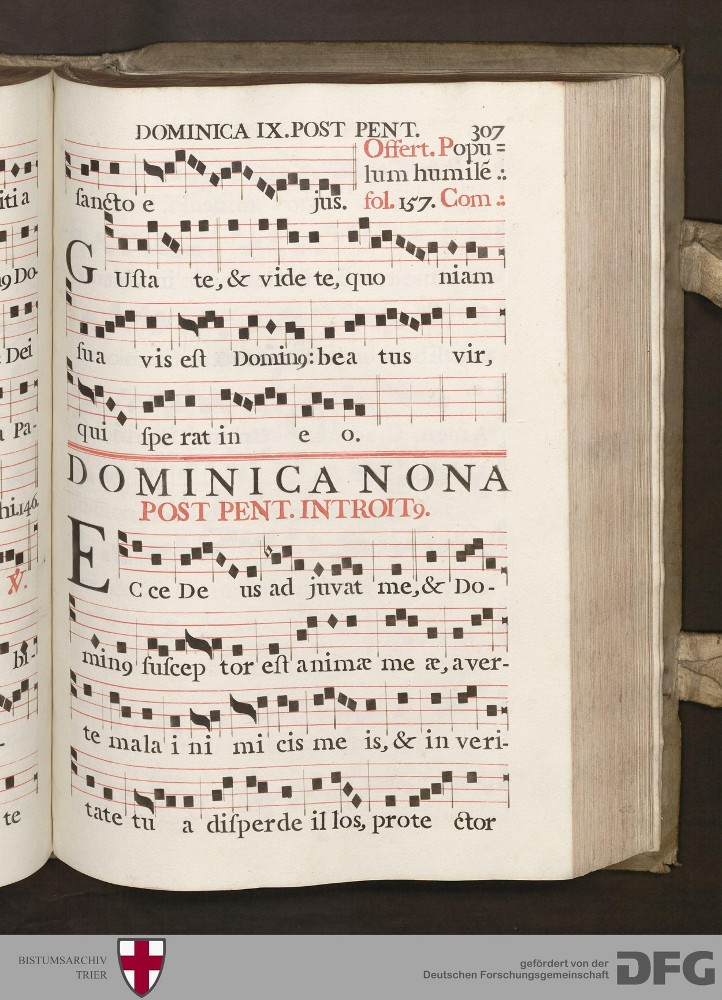 DOMINICA IX. POST PENT. 307
Offert. Popu=
lum humilẽ .:
sancto e jus. fol. 157. Com .:
GUsta te, & vide te, quo niam
sua vis est Domin9: bea tus vir,
qui spe rat in e o.
DOMINICA NONA
POST PENT. INTROIT9.
ECce De us ad juvat me, & Do-
min9 suscep tor est animæ me æ, aver-
te mala i ni mi cis me is, & in veri-
tate tu a disperde il los, prote ctor
iti a
9 Do-
Dei
Pa-
hi. 146.
bi-
te
BISTUMSARCHIV
TRIER
gefördert von der
Deutschen Forschungsgemeinschaft
DFG